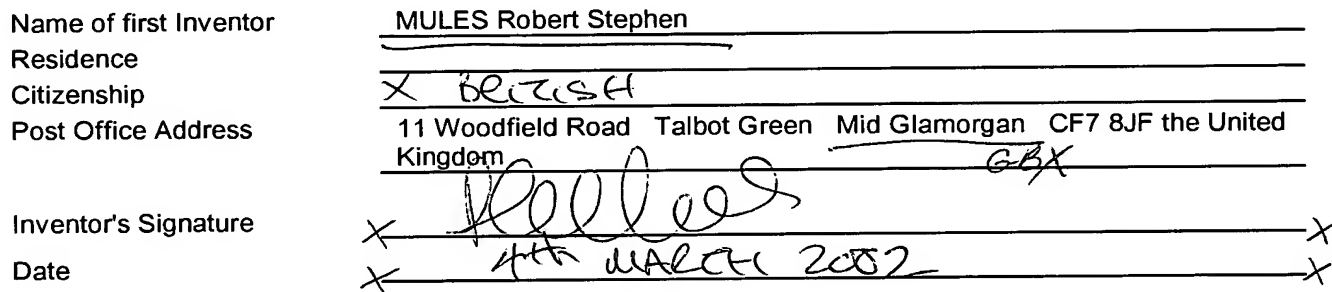 Name of first Inventor MULES Robert Stephen
Residence
Citizenship X BRITISH
Post Office Address 11 Woodfield Road Talbot Green Mid Glamorgan CF7 8JF the United
Kingdom GBX
Inventor's Signature X X
Date X 4th MARCH 2002 X